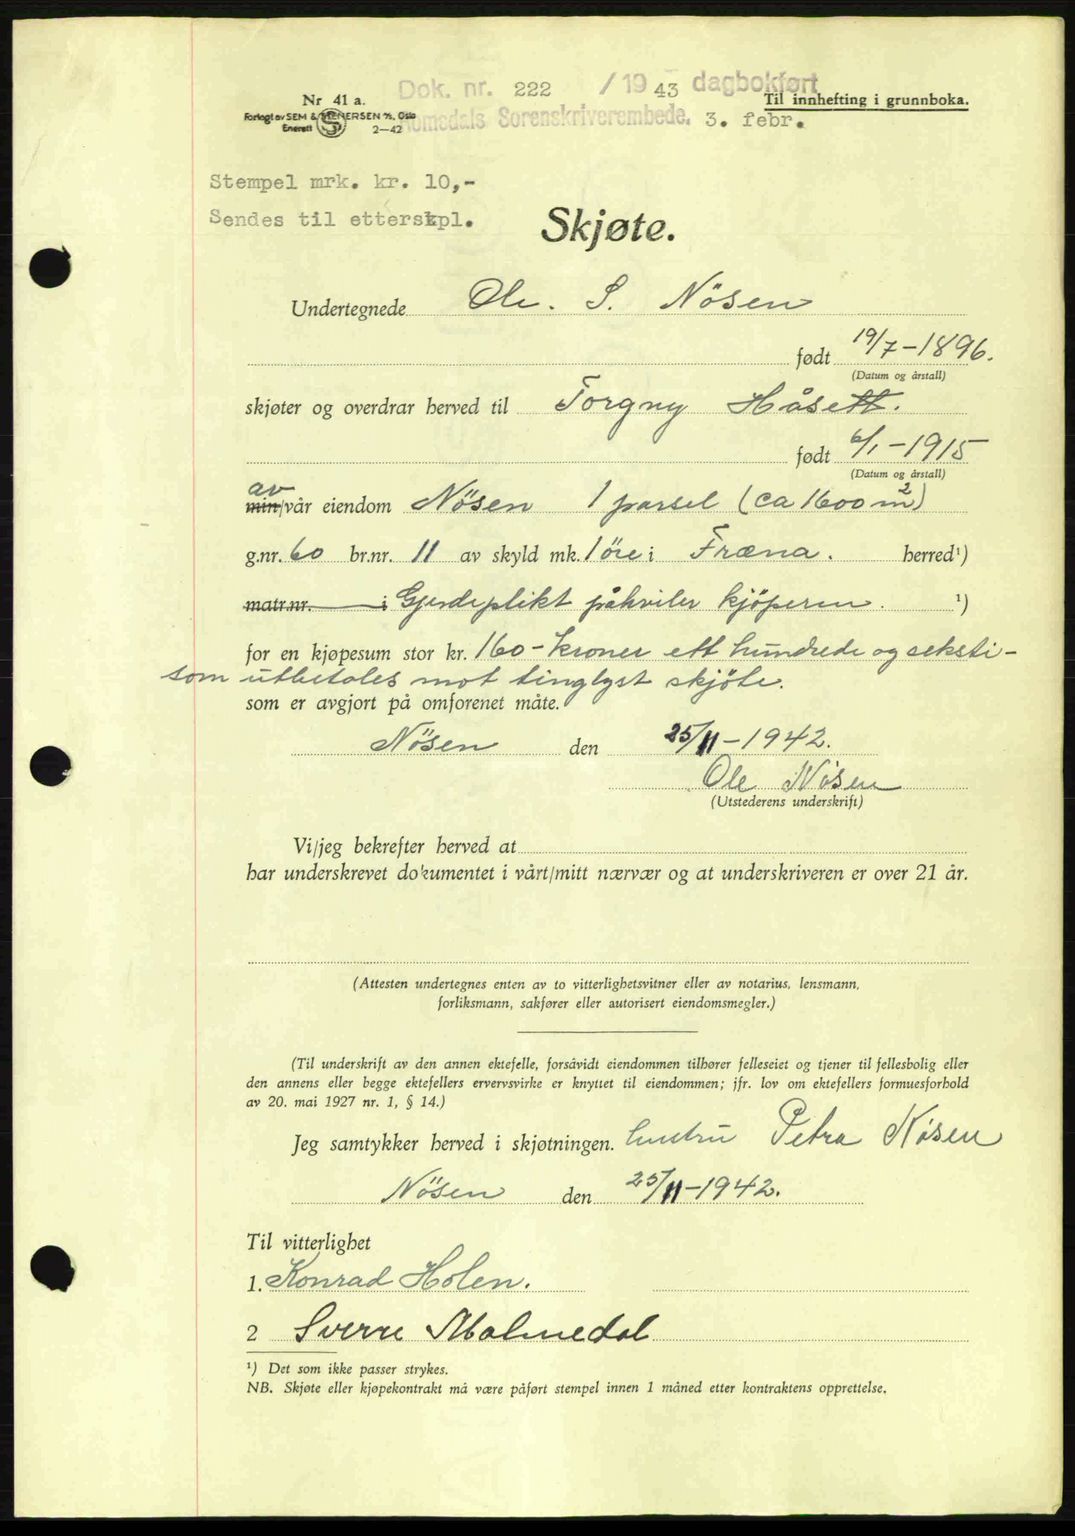 Dok. nr. 222 / 1943 dagbokført
Nr 41 a.
Til innhefting i grunnboka.
Forlagt av SEM & STENERSEN A/S, Oslo
Enerett 2-42
Romsdals Sorenskriverembede. 3. febr.
Stempel mrk. kr. 10,-
Sendes til etterskpl.
Skjøte.
Undertegnede Ole. S. Nösen
født 19/7-1896.
(Datum og årstall)
skjøter og overdrar herved til Torgny Håsett.
født 6/1-1915
(Datum og årstall)
av
min/vår eiendom Nösen 1 parsel (ca 1600 m2)
g.nr. 60 br.nr. 11 av skyld mk. 1 öre i Fræna. herred¹)
matr.nr. i Gjerdeplikt påhviler kjöperen. ¹)
for en kjøpesum stor kr. 160- kroner ett hundrede og seksti-
som utbetales mot tinglyst skjöte.
som er avgjort på omforenet måte.
Nösen den 25/11-1942.
Ole Nösen
(Utstederens underskrift)
Vi/jeg bekrefter herved at
har underskrevet dokumentet i vårt/mitt nærvær og at underskriveren er over 21 år.
(Attesten undertegnes enten av to vitterlighetsvitner eller av notarius, lensmann,
forliksmann, sakfører eller autorisert eiendomsmegler.)
(Til underskrift av den annen ektefelle, forsåvidt eiendommen tilhører felleseiet og tjener til fellesbolig eller
den annens eller begge ektefellers ervervsvirke er knyttet til eiendommen; jfr. lov om ektefellers formuesforhold
av 20. mai 1927 nr. 1, § 14.)
Jeg samtykker herved i skjøtningen. hustru Petra Nösen
Nösen den 25/11-1942.
Til vitterlighet
1. Konrad Holen.
2 Sverre Malmedal
¹) Det som ikke passer strykes.
NB. Skjøte eller kjøpekontrakt må være påført stempel innen 1 måned etter kontraktens opprettelse.